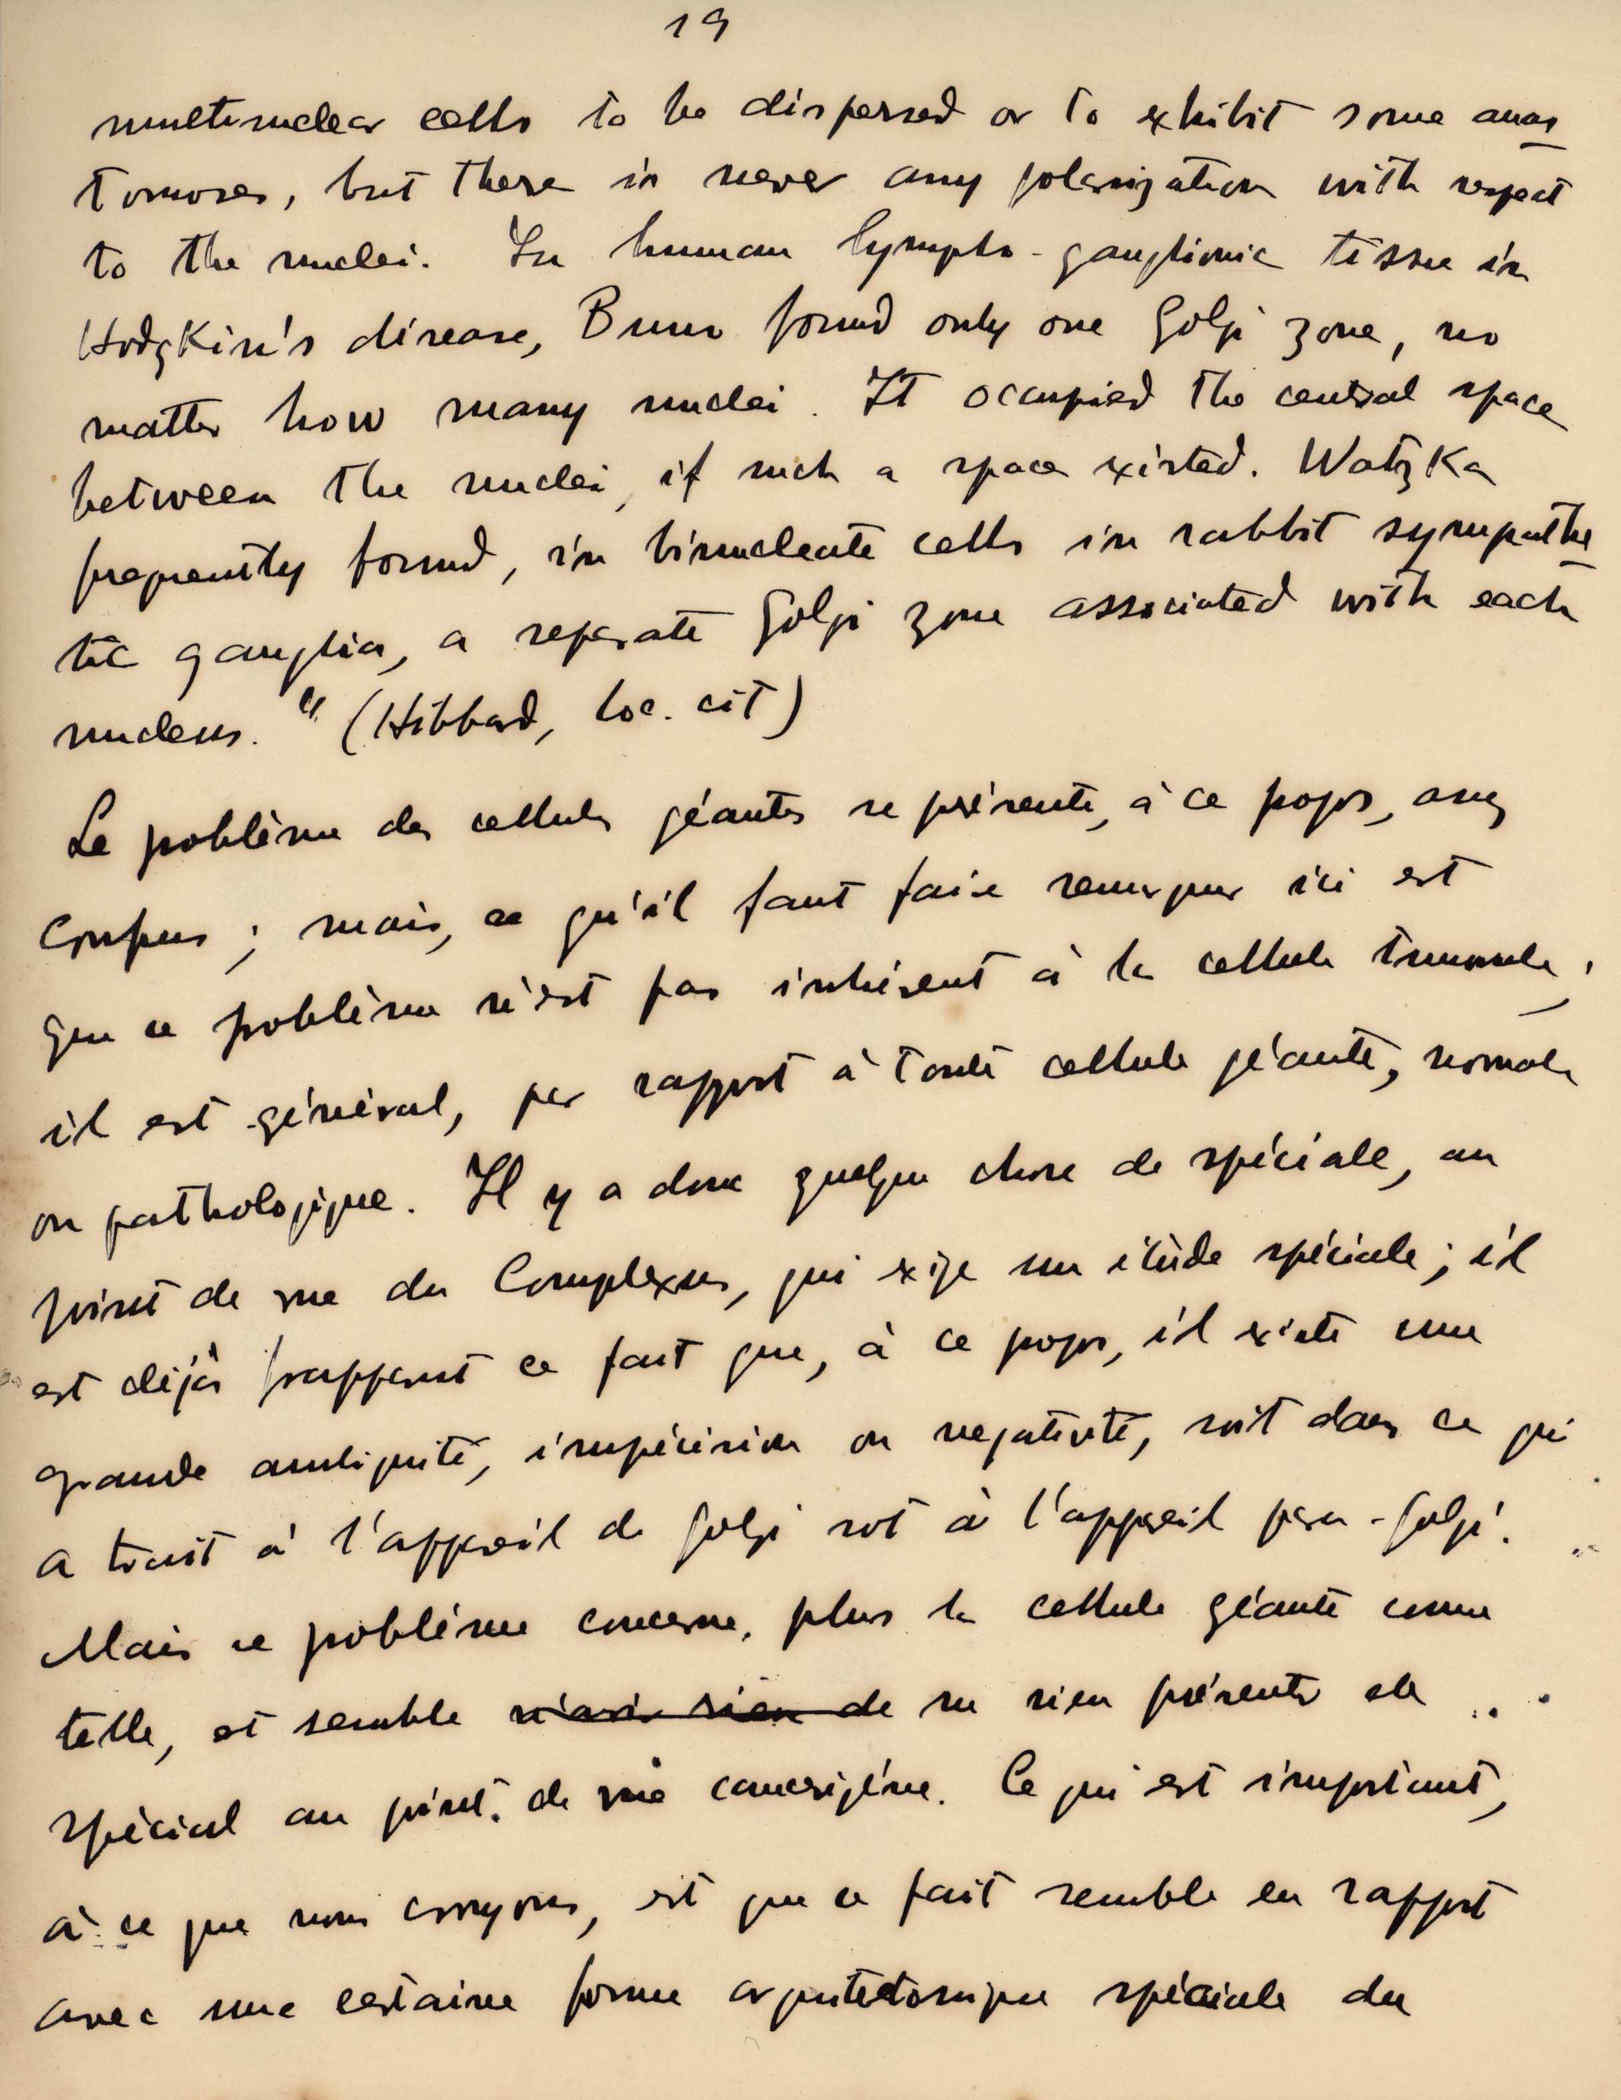 19
multinuclear cells to be dispersed or to exhibit some anas
tomoses, but there is never any polarization with respect
to the nuclei. In human lympho-ganglionic tissue in
Hodgkin's disease, Buno found only one Golgi zone, no
matter how many nuclei. It occupied the central space
between the nuclei, if such a space existed. Watzka
frequently found, in binucleate cells in rabbit sympathe
tic ganglia, a separate Golgi zone associated with each
nucleus." (Hibbard, loc. cit)
Le problème des cellules géantes se présente, à ce propos, assez
confus; mais, ce qu'il faut faire remarquer ici est
que ce problème n'est pas inhérent à la cellule tumorale;
il est général, par rapport à toute cellule géante, normale
ou pathologique. Il y a donc quelque chose de spéciale, au
point de vue du Complexus, qui exige une étude spéciale; il
est déjà frappant ce fait que, à ce propos, il existe une
grande ambiguité, imprécision ou negativité, soit dans ce qui
a trait à l'appareil de Golgi soit à l'appareil para-Golgi.
Mais ce problème concerne, plus la cellule géante comme
telle, et semble n'avoir rien de ne rien présenter de
spécial au point de vue cancerigène. Ce qui est important,
à ce que nous croyons, est que ce fait semble en rapport
avec une certaine forme arquitectonique spéciale du